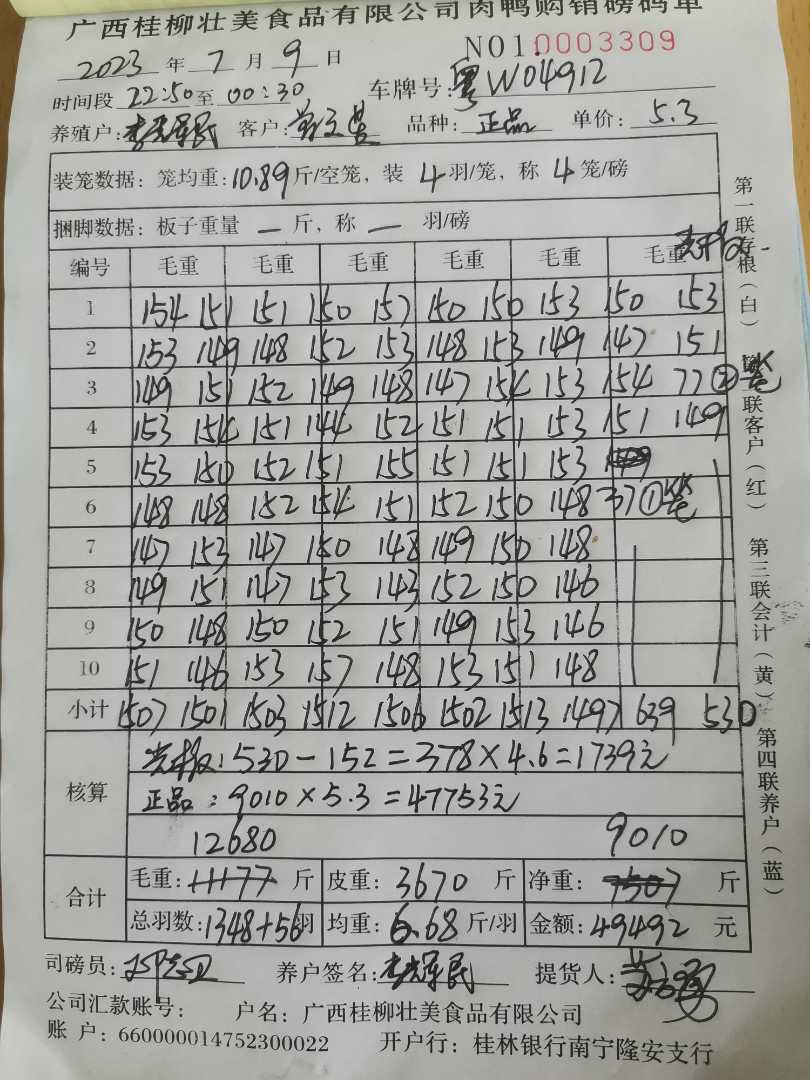 广西桂柳壮美食品有限公司肉鸭购销磅码单
2023 年 7 月 9 日 NO1:0003309
时间段 22:50 至 00:30 车牌号: 粤W04912
养殖户: 客户: 品种: 正品 单价: 5.3
装笼数据: 笼均重: 10.89 斤/空笼, 装 4 羽/笼, 称 4 笼/磅
捆脚数据: 板子重量 — 斤, 称 — 羽/磅
编号 毛重 毛重 毛重 毛重 毛重 毛重
1 154 151 151 150 157 150 150 153 150 153
2 153 149 148 152 153 148 153 149 147 151
3 149 151 152 149 148 147 154 153 154 77②笼
4 153 154 151 144 152 151 151 153 151 149
5 153 150 152 151 155 151 151 153
6 148 148 152 154 151 152 150 148 37①笼
7 147 153 147 150 148 149 150 148
8 149 151 147 153 143 152 150 146
9 150 148 150 152 151 149 153 146
10 151 146 153 157 148 153 151 148
小计 1507 1501 1503 1512 1506 1502 1513 1497 639 530
核算
530－152＝378×4.6＝1739元
正品: 9010×5.3＝47753元
12680 9010
合计
毛重: 11177 斤 皮重: 3670 斤 净重: 7507 斤
总羽数: 1348+56 羽 均重: 6.68 斤/羽 金额: 49492 元
司磅员: 养户签名: 提货人:
公司汇款账号: 户名: 广西桂柳壮美食品有限公司
账 户: 660000014752300022 开户行: 桂林银行南宁隆安支行
第一联存根(白)
第二联客户(红)
第三联会计(黄)
第四联养户(蓝)